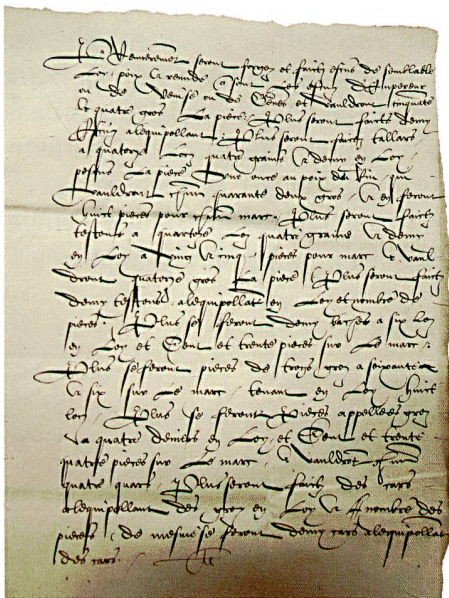 Premierement seront forgez et faictz escus de semblable
Loy, poix et remide que les escus d'Empereur
ou de Venise ou de Genes et vauldront cinquante
et quatre gros La piece. Plus seront faicts demy
escus alequipollant. Plus seront faictz tallars
a quatorze Loz quatre grains et demy en Loy
pesans La piece une once au poix du
vauldront quarante deux gros, et en seront
huit pieces pour marc. Plus seront faictz
testons a quatorze Loz quatre grains et demy
en Loy a vingt et cinq pieces pour marc et vaul-
dront quatorze gros La piece. Plus seront faictz
demy testons alequipollant en Loy et nombre de
pieces. Plus se feront demy batses a six Loz
en Loy et Cent et trente pieces sur Le marc.
Plus se feront pieces de troys gros a soixante
et six sur Le marc tenant en Loy huit
loz. Plus se feront Pieces appellees gros
a quatre deniers en Loy, et Cent et trente
quatre pieces sur Le marc, vauldront
quatre quars. Plus seront faictz des cars
alequipollant des gros en Loy et nombre des
pieces, de mesme se feront demy cars alequipollant
des cars.